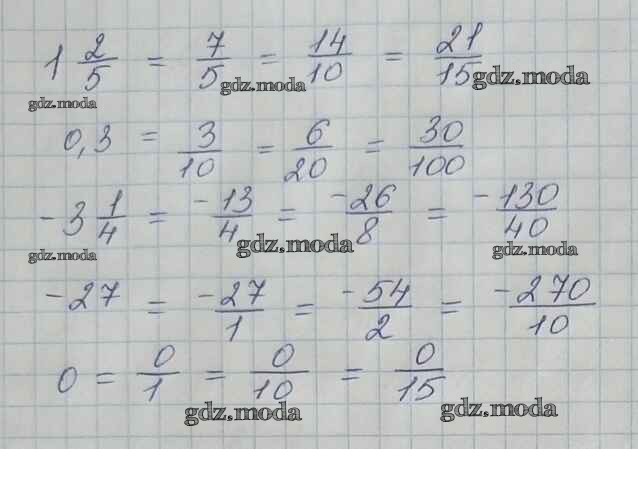 1 2/5 = 7/5 = 14/10 = 21/15
gdz.moda gdz.moda gdz.moda
0,3 = 3/10 = 6/20 = 30/100
-3 1/4 = -13/4 = -26/8 = -130/40
gdz.moda gdz.moda gdz.moda
-27 = -27/1 = -54/2 = -270/10
0 = 0/1 = 0/10 = 0/15
gdz.moda gdz.moda